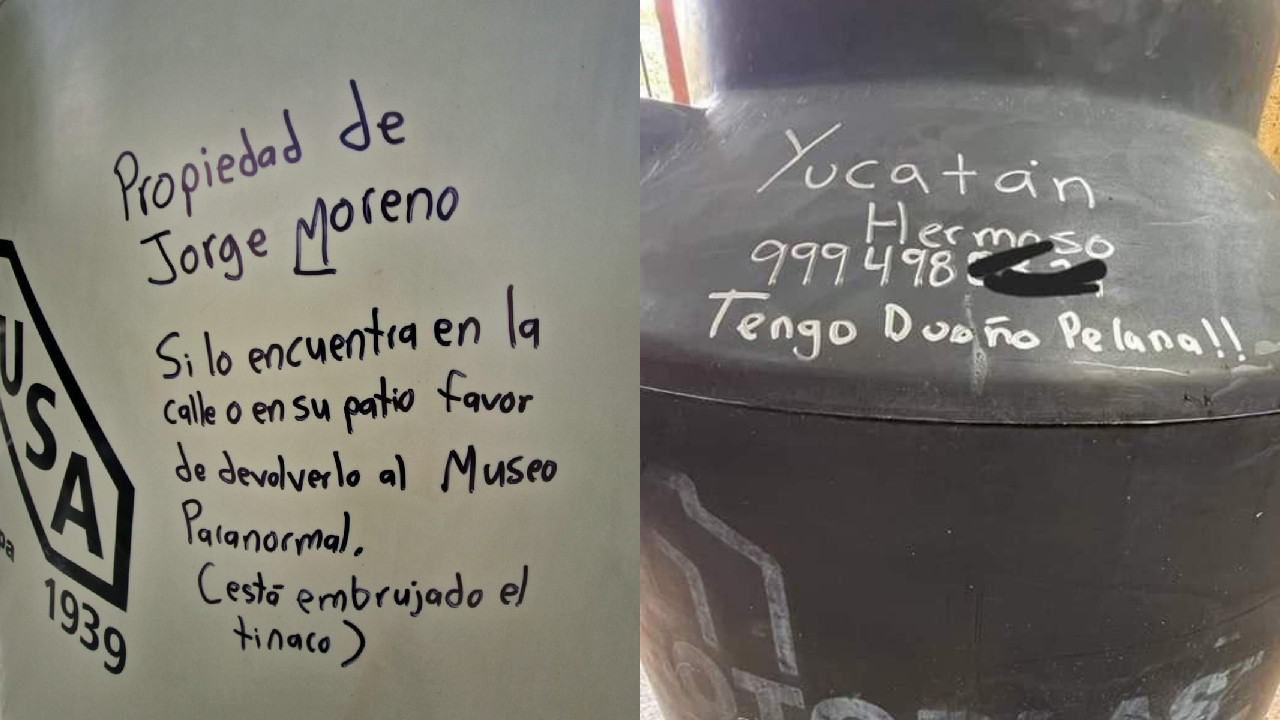 Propiedad de
Jorge Moreno
Si lo encuentra en la
calle o en su patio favor
de devolverlo al Museo
Paranormal.
(está embrujado el
tinaco)
USA
1939
Yucatán
Hermoso
999 498
Tengo Dueño Pelana!!